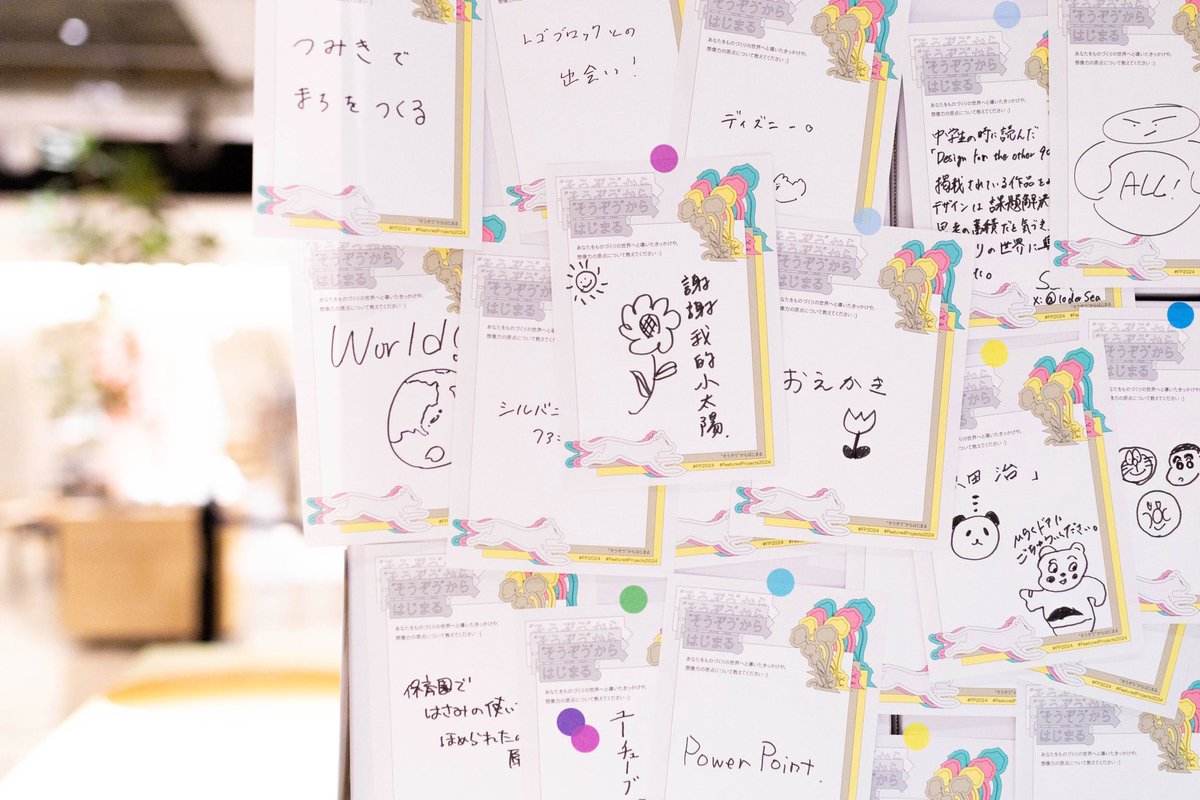 つみきで
まちをつくる
"そうぞう"からはじまる
#FP2024 #FeaturedProjects2024
レゴブロックとの
出会い!
ディズニー。
"そうぞう"から
はじまる
あなたをものづくりの世界へと導いたきっかけや、
想像力の原点について教えてください :)
中学生の時に読んだ
「Design for the other 90
掲載されている作品を
デザインは課題解決
りの世界に
た。
"そうぞう"から
はじまる
ALL!
#FP2024
"そうぞう"から
はじまる
あなたをものづくりの世界へと導いたきっかけや、
想像力の原点について教えてください :)
World
"そうぞう"から
はじまる
シルバニ
ファ
"そうぞう"から
はじまる
あなたをものづくりの世界へと導いたきっかけや、
想像力の原点について教えてください :)
謝謝我的小太陽.
"そうぞう"からはじまる
#FP2024 #FeaturedProjects2024
"そうぞう"から
はじまる
あなたをものづくりの世界へと導いたきっかけや、
想像力の原点について教えてください :)
おえかき
"そうぞう"からはじまる
#FP2024 #FeaturedProjects2024
田治」
"そうぞう"からはじまる
#FP2024 #FeaturedProjects2024
"そうぞう"から
はじまる
あなたをものづくりの世界へと導いたきっかけや、
想像力の原点について教えてください :)
保育園で
はさみの使い
ほめられた。
"そうぞう"から
はじまる
あなたをものづくりの世界へと導いたきっかけや、
想像力の原点について教えてください :)
ユーチューブ
"そうぞう"から
はじまる
あなたをものづくりの世界へと導いたきっかけや、
想像力の原点について教えてください :)
PowerPoint.
"そうぞう"から
はじまる